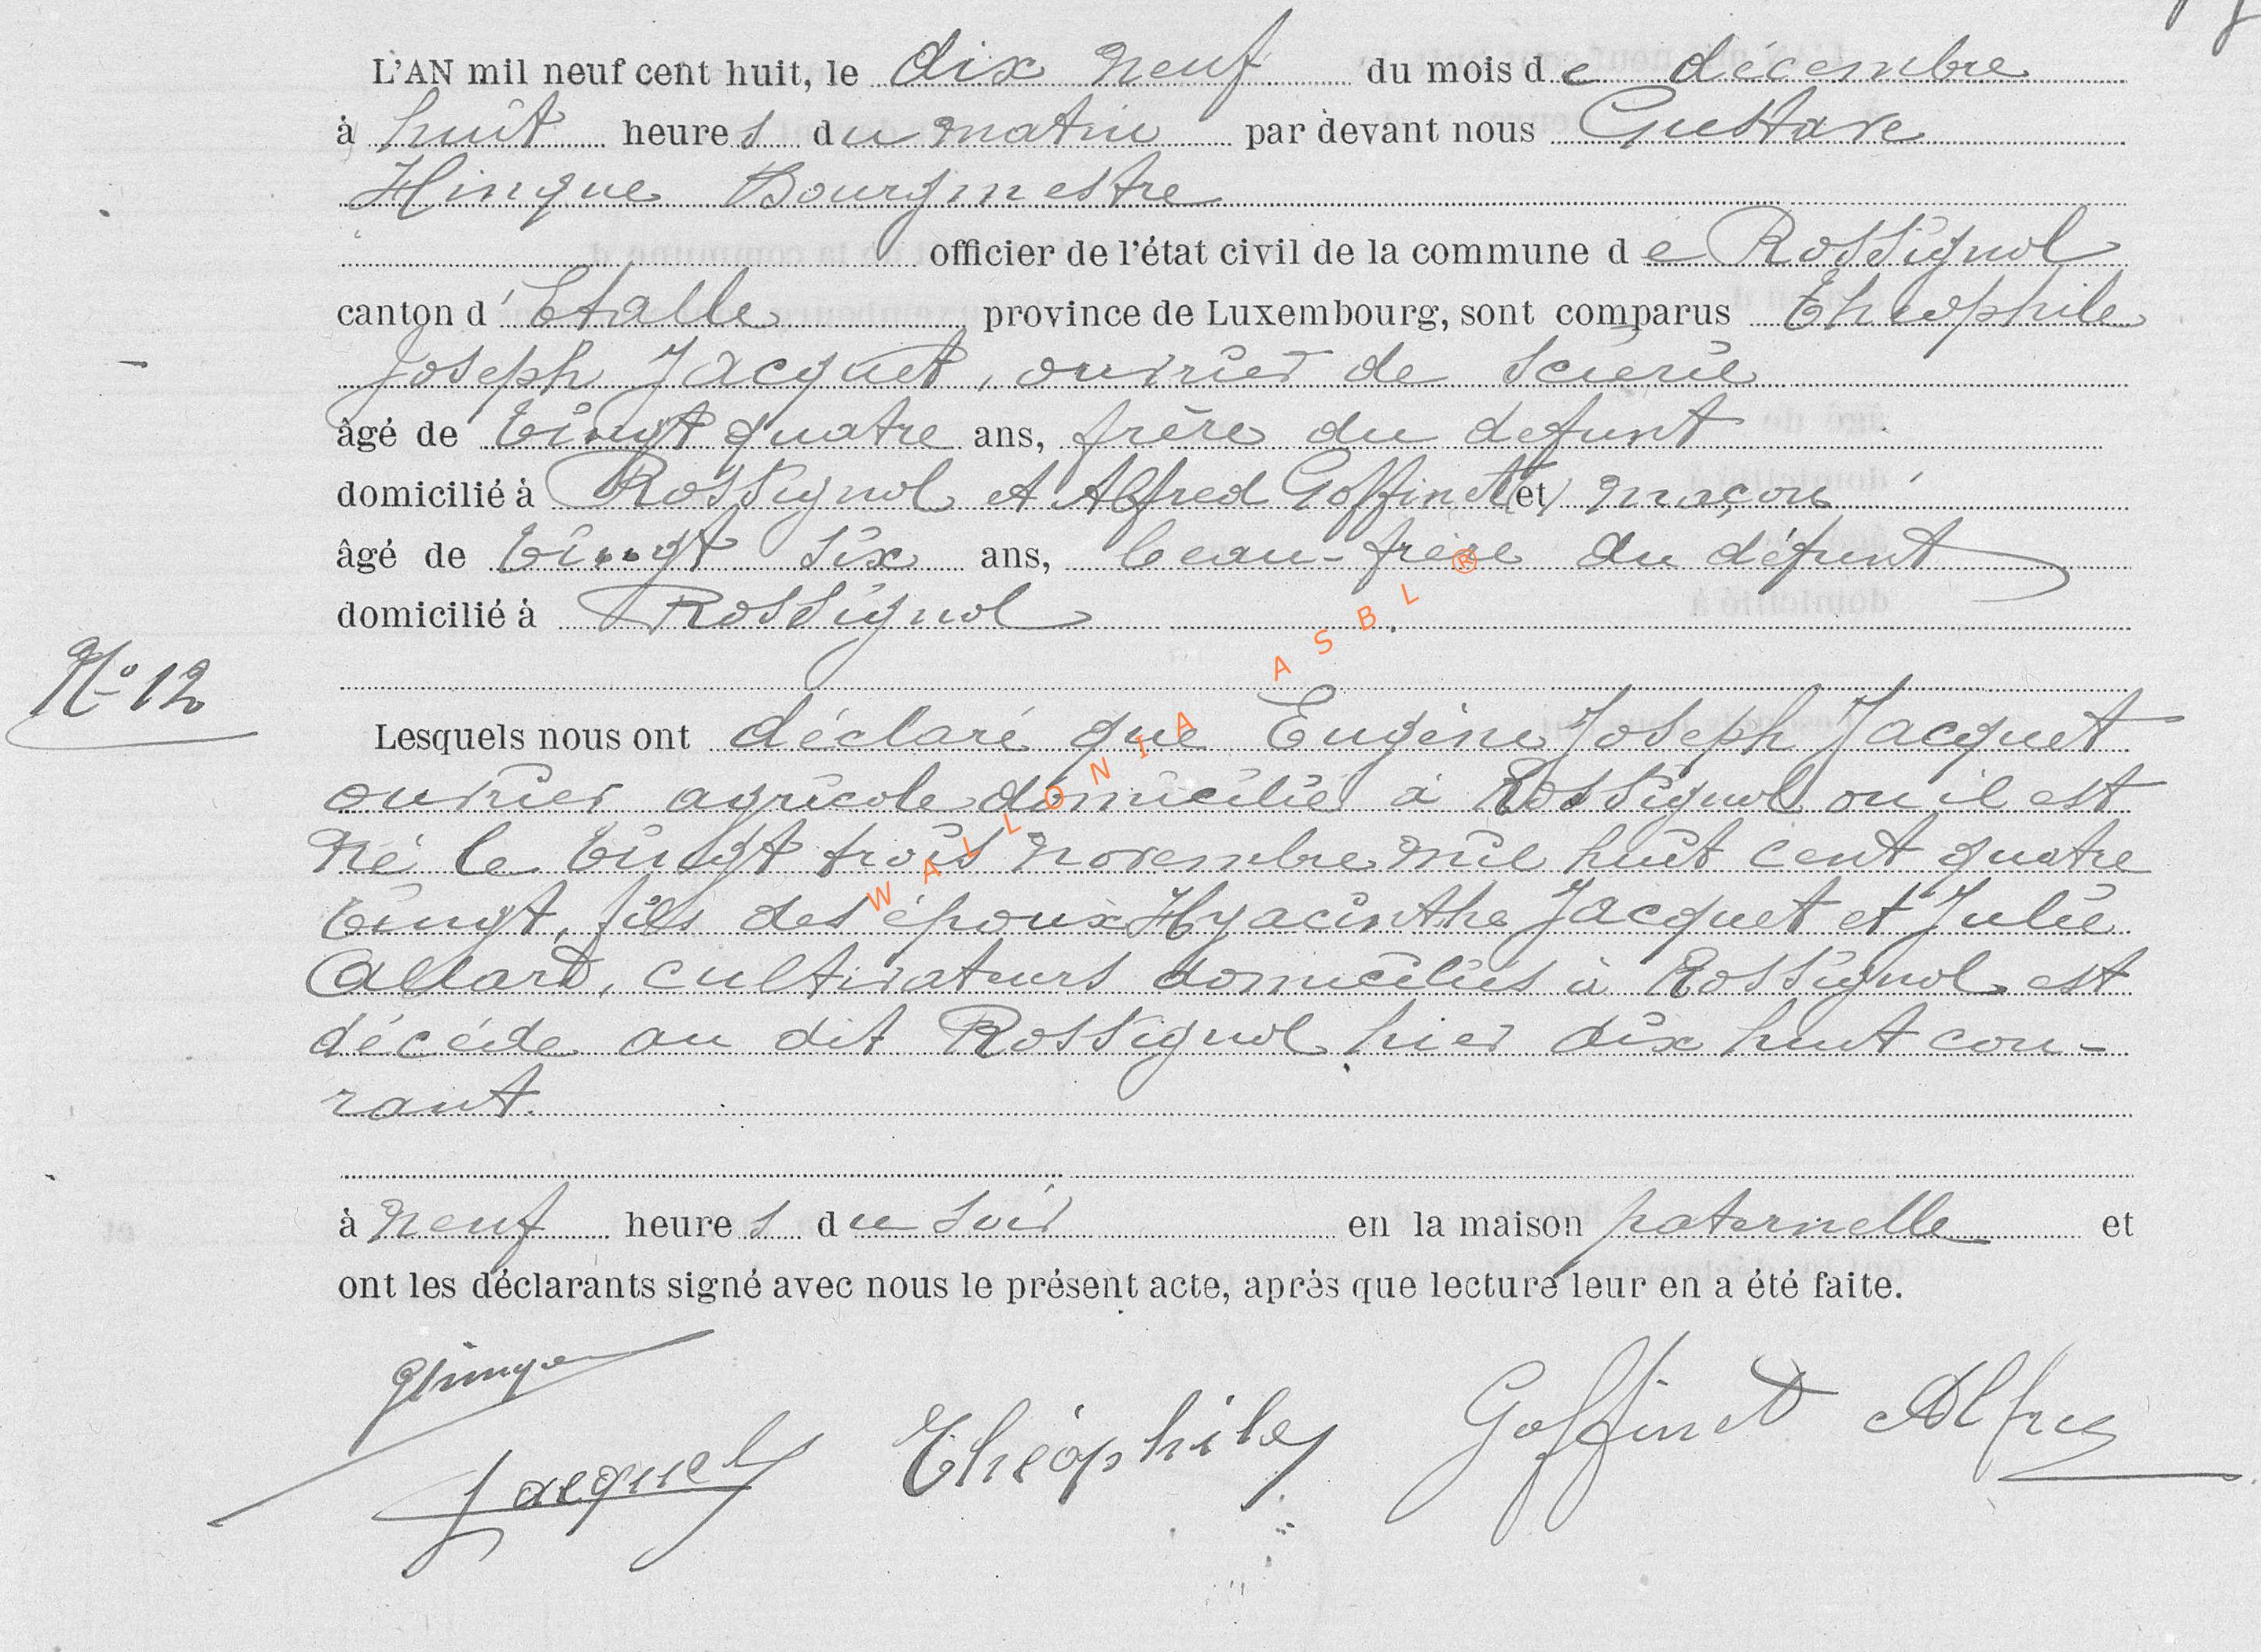 L'AN mil neuf cent huit, le dix neuf du mois de décembre
à huit heures du matin par devant nous Gustave
Hinque Bourgmestre
officier de l'état civil de la commune de Rossignol
canton d'Etalle province de Luxembourg, sont comparus Théophile
Joseph Jacquet, ouvrier de scierie
âgé de vingt quatre ans, frère du defunt
domicilié à Rossignol et Alfred Goffinet (et) maçon
âgé de vingt six ans, beau-frère du défunt
domicilié à Rossignol
N° 12
Lesquels nous ont déclaré que Eugène Joseph Jacquet
ouvrier agricole domicilié à Rossignol ou il est
né le vingt trois novembre mil huit cent quatre
vingt, fils des époux Hyacinthe Jacquet et Julie
Allard, cultivateurs domiciliés à Rossignol est
décédé au dit Rossignol hier dix huit cou-
rant.
à neuf heures du soir en la maison paternelle et
ont les déclarants signé avec nous le présent acte, après que lecture leur en a été faite.
GHinque
Jacquet Théophile Goffinet Alfred
WALLONIA ASBL ®